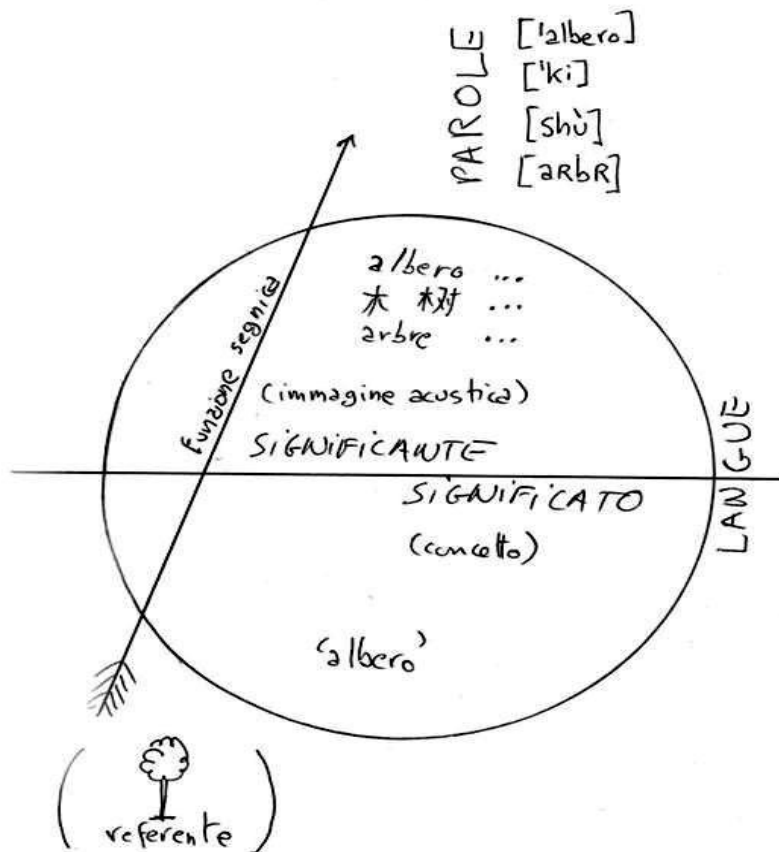 PAROLE
['albero]
['ki]
[shù]
[aRbR]
funzione segnica
albero ...
木 树 ...
arbre ...
(immagine acustica)
SIGNIFICANTE
SIGNIFICATO
(concetto)
LANGUE
'albero'
referente